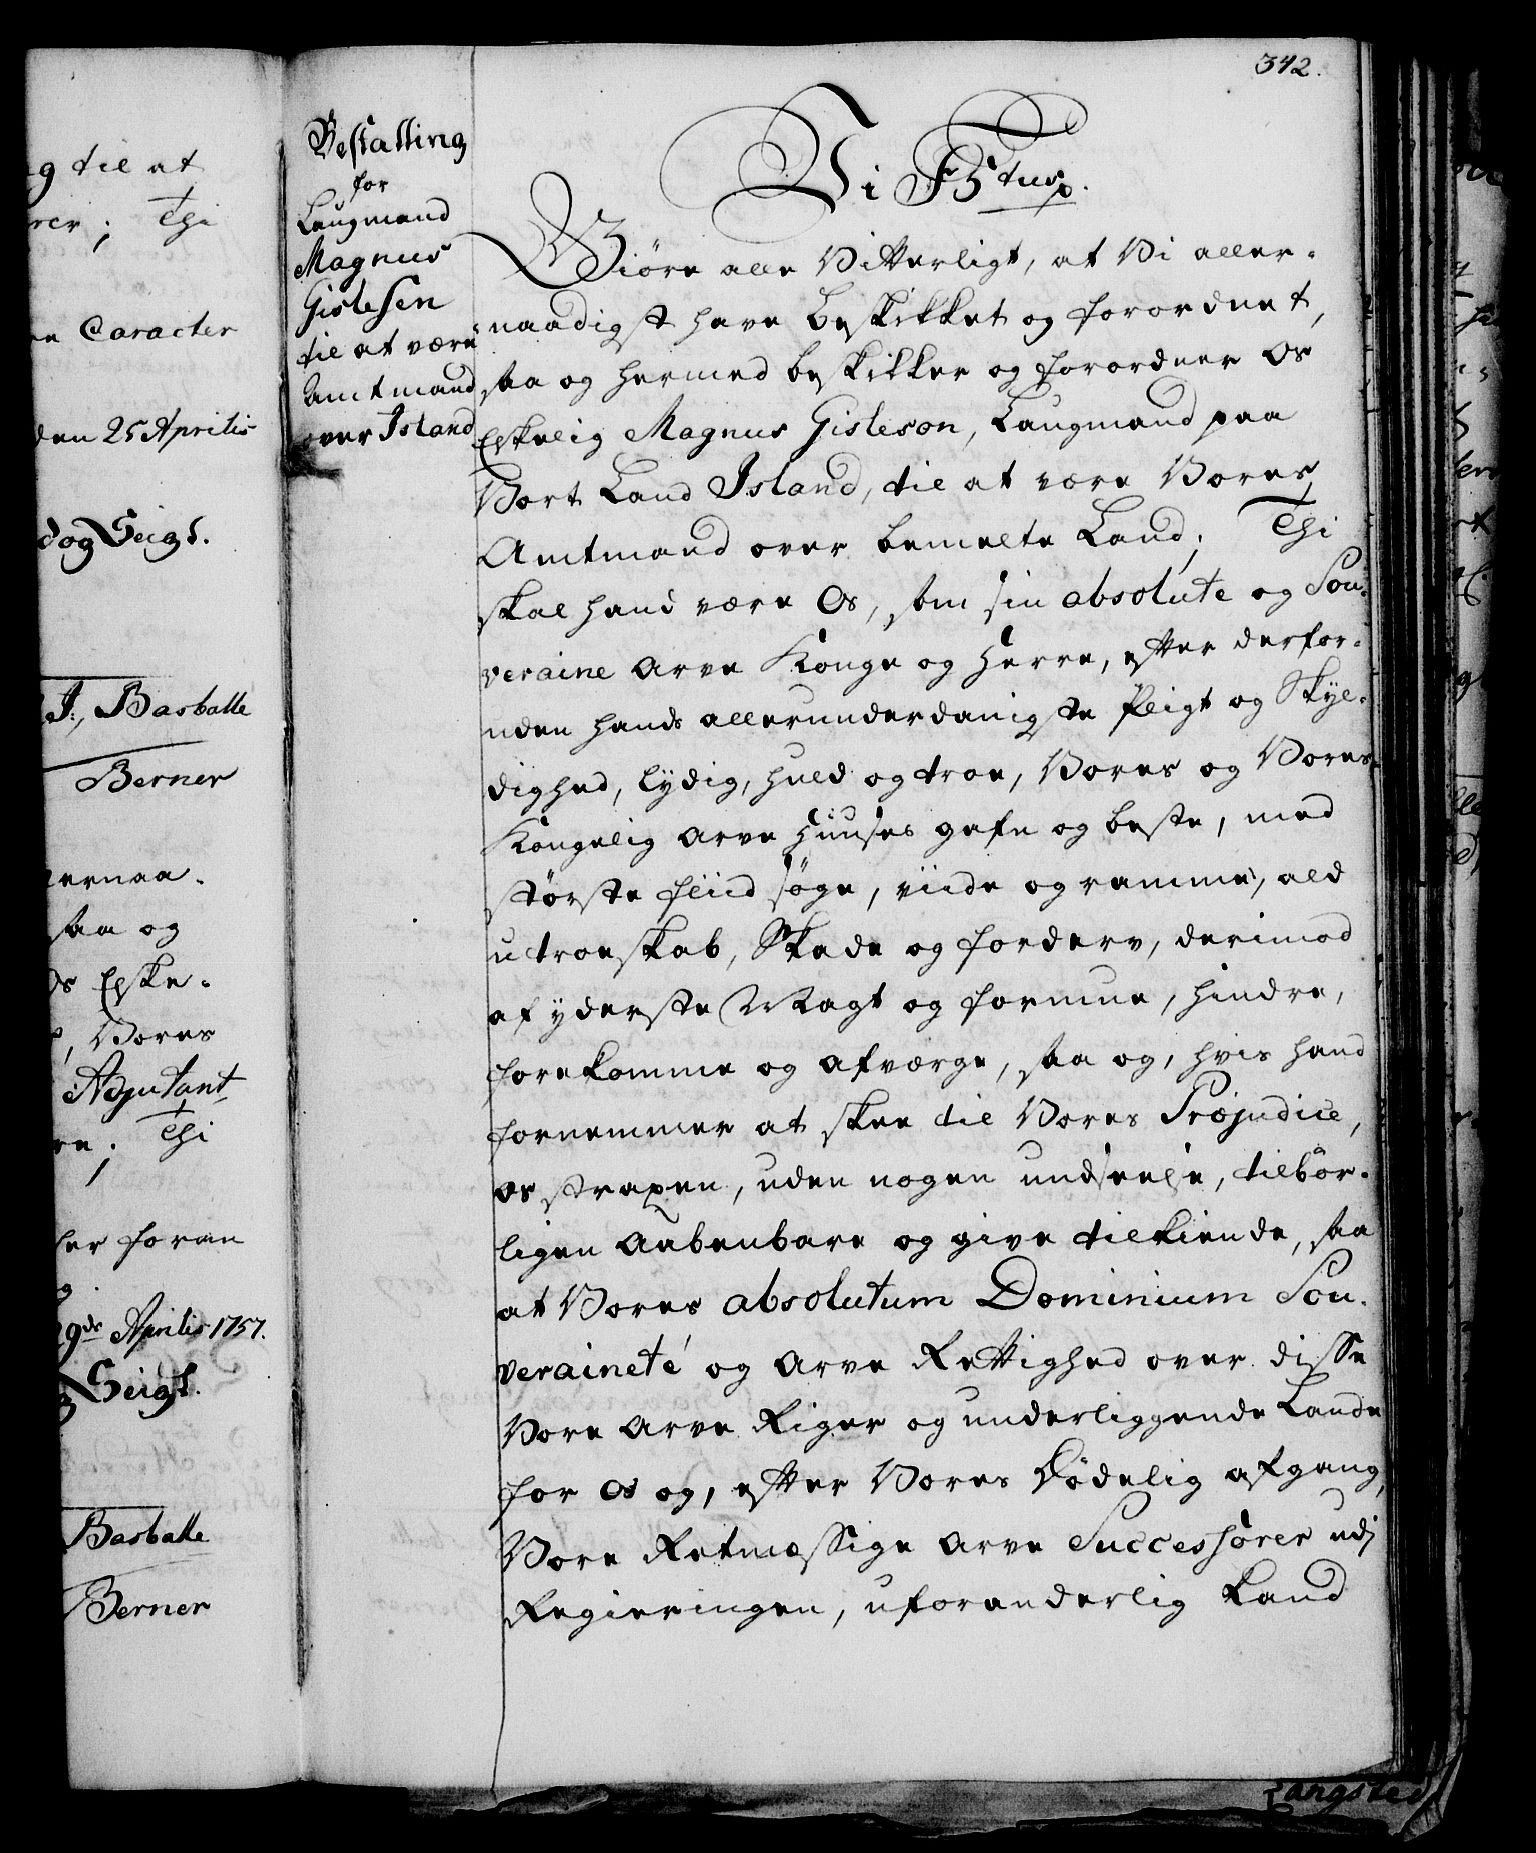 g til at
rer; Thi
re Caracter
den 25 Aprilis
d og Seigl.
J., Basballe
Berner
lernaa-
saa og
Os Elske-
, Vores
Adjutant
re; Thi
ler foran
g.
29de Aprilis 1757.
Seigl.
Basballe
Berner
342.
Bestalling
for
Laugmand
Magnus
Gislesen
til at være
Amtmand
over Island
Vi F5tus p.
Giøre alle Vitterligt, at Vi aller-
naadigst have beskikket og forordnet,
saa og hermed beskikker og forordner Os
Elskelig Magnus Gisleson, Laugmand paa
Vort Land Island, til at være Vores
Amtmand over bemelte Land; Thi
skal hand være Os, som sin absolute og Sou-
veraine Arve Konge og Herre, efter derfor-
uden hands allerunderdanigste Pligt og Skyl-
dighed, lydig, huld og troe, Vores og Vores
Kongelig Arve Huuses gafn og beste, med
største fliid søge, viide og ramme, ald
utroeskab, Skade og forderv, derimod
af yderste Magt og formue, hindre,
forekomme og afværge, saa og, hvis hand
fornemmer at skee til Vores Præjudice,
Os straxen, uden nogen undseelse, tilbør-
ligen Aabenbare og give tilkiende, saa
at Vores absolutum Dominium Sou-
veraineté og Arve Rettighed over disse
Vore Arve Riger og underliggende Lande
for Os og, efter Vores Dødelig afgang,
Vore Retmæssige Arve Successorer udj
Regieringen, uforanderlig kand
Langsted